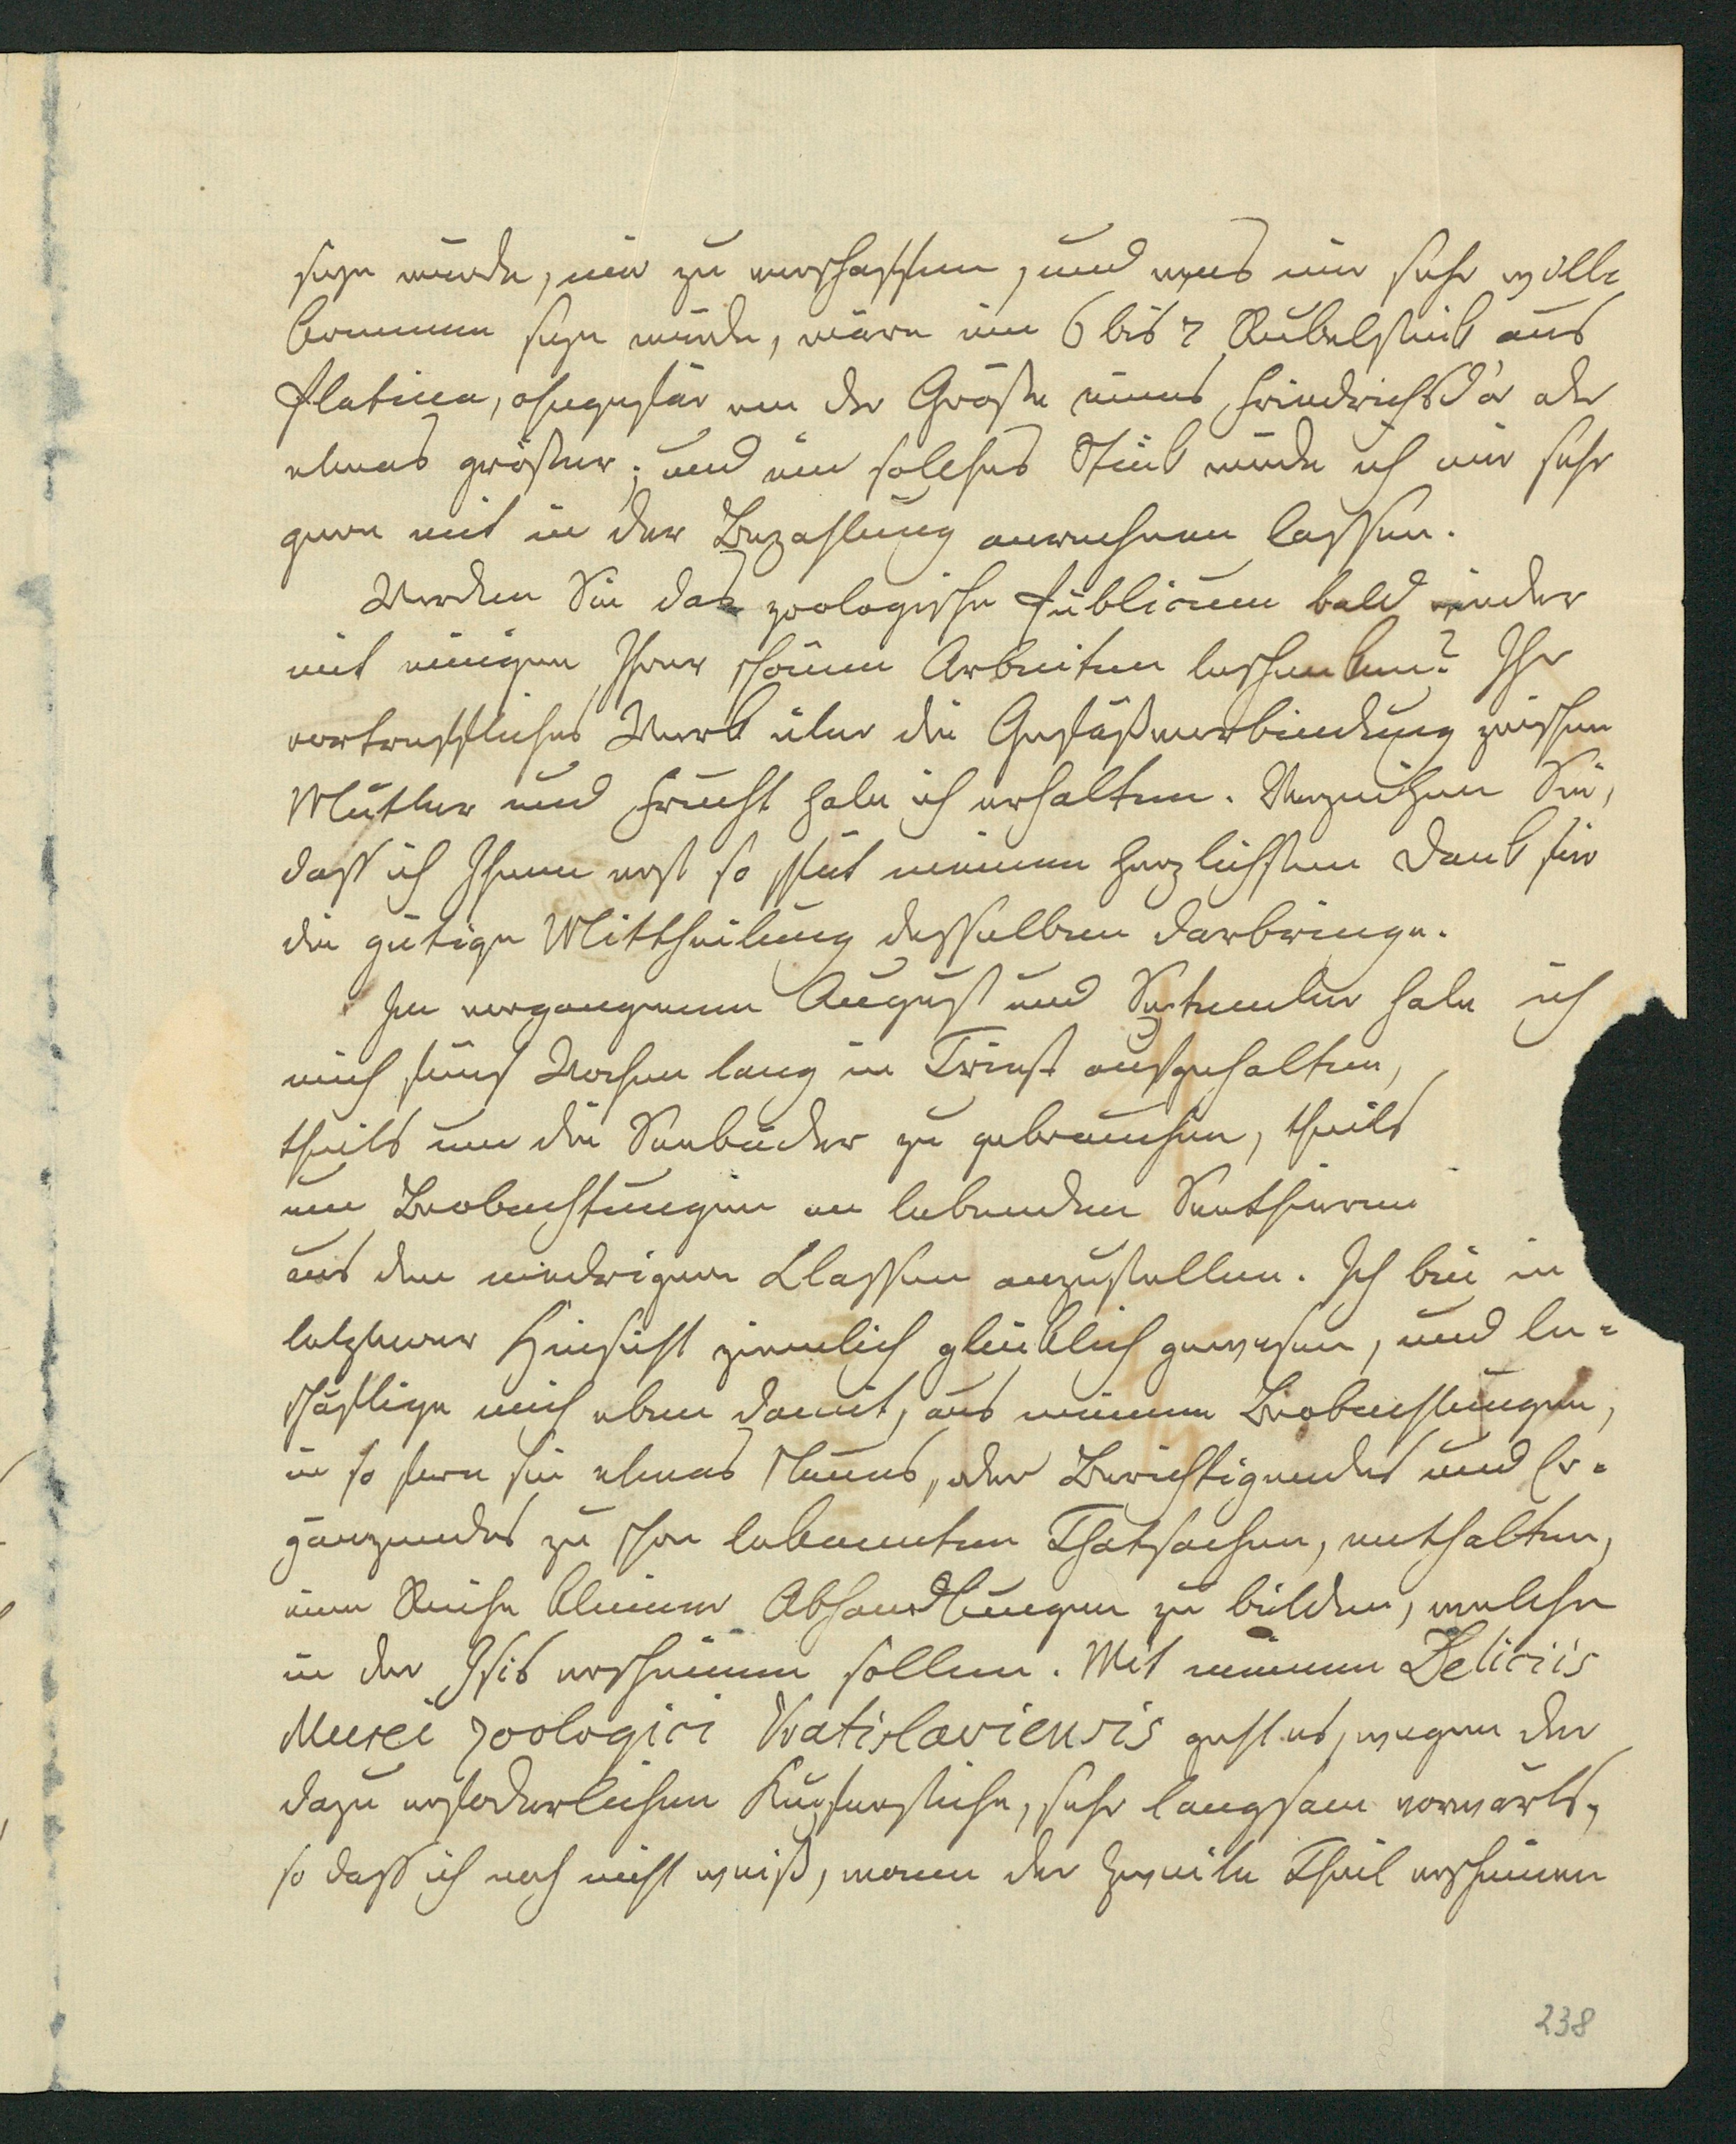 seyn würde, mir zu verschaffen, und was mir sehr will-
kommen seyn würde, wäre ein 6 bis 7 Rubelstück aus
Platina, ohngefär von der Größe eines Friedrichsd'or oder
etwas größer; und ein solches Stück würde ich mir sehr
gern mit in der Bezahlung anrechnen lassen.
Werden Sie das zoologische Publicum bald wieder
mit einigen Ihrer schönen Arbeiten beschenken? Ihr
vortreffliches Werk über die Gefäßverbindung zwischen
Mutter und Frucht habe ich erhalten. Verzeihen Sie,
daß ich Ihnen erst so spät meinen herzlichsten Dank für
die gütige Mittheilung desselben darbringe.
Im vergangenen August und September habe ich
mich fünf Wochen lang in Triest aufgehalten,
theils um die Seebäder zu gebrauchen, theils
um Beobachtungen an lebenden Seethieren
aus den niedrigern Classen anzustellen. Ich bin in
letzterer Hinsicht ziemlich glücklich gewesen, und be-
schäftige mich eben damit, aus meinen Beobachtungen,
in so fern sie etwas Neues, oder Berichtigendes und Er-
gänzendes zu schon bekannten Thatsachen, enthalten,
eine Reihe kleiner Abhandlungen zu bilden, welche
in der Isis erscheinen sollen. Mit meinen Deliciis
Musei zoologici Vratislaviensis geht es, wegen der
dazu erforderlichen Kupferstiche, sehr langsam vorwärts,
so daß ich noch nicht weiß, wann der zweite Theil erscheinen
238